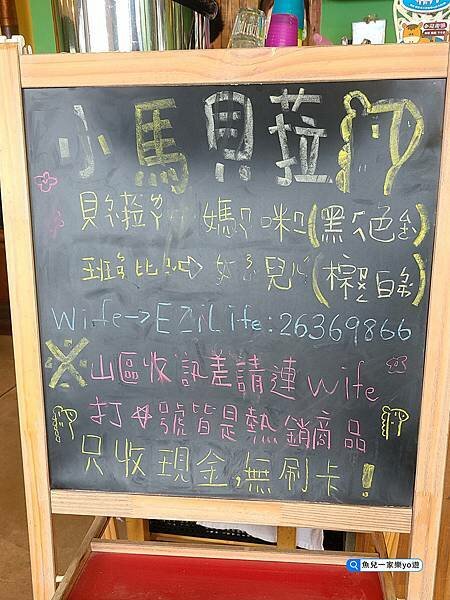 小馬貝菈
貝菈 媽咪(黑色)
班比 女兒(棕白)
Wife→EZiLife:26369866
※山區收訊差請連wife
打★號皆是熱銷商品
只收現金,無刷卡!
魚兒一家樂yo遊